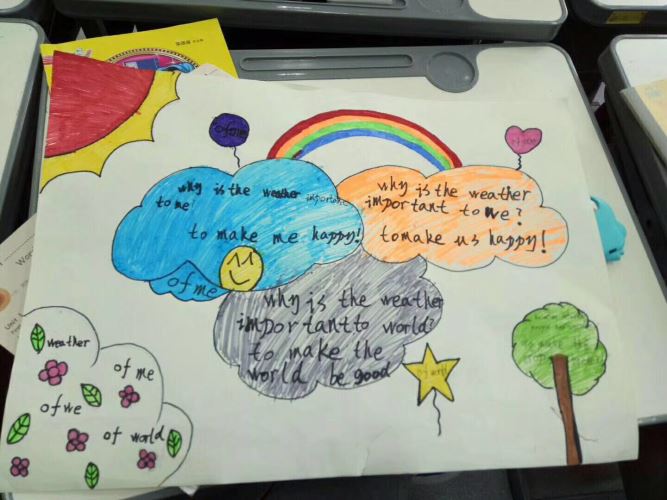 of me
why is the weather important
to me?
to make me happy!
of me
why is the weather
important to we?
to make us happy!
why is the weather
important to world?
to make the
world be good
weather
of me
of we
of world